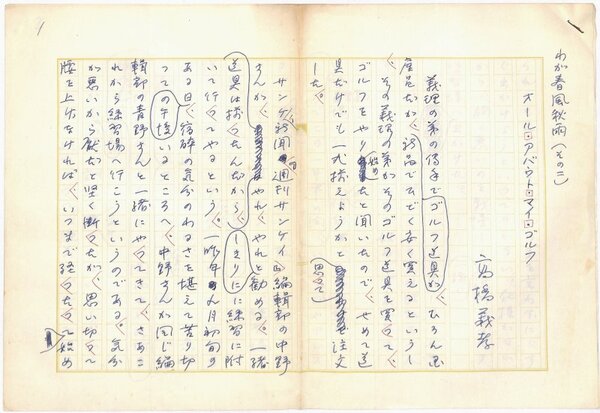 1
わが春風秋雨（その二）
オール・アバウト・マイ・ゴルフ
高橋義孝
義理の弟の倅手でゴルフ道具が、むろん国
産品だが、新品でえらく安く買えるというし、
その義理の弟がそのゴルフ道具を買って、
ゴルフをやり始めたと聞いたので、せめて道
具だけでも一式揃えようかと思って注文
した。
サンケイ新聞の週刊サンケイ編輯部の中野
さんが、やれ、やれと勧める。一緒
道具は揃ったんだから、しきりに練習に附
いて行ってやるという。一昨年の八月初旬の
ある日、宿酔の気分のわるさを堪えて苦り切
っての午後いるところへ、中野さんが同じ編
輯部の青野さんと一緒にやってきて、さあこ
れから練習場へ行こうというのである。気分
が悪いから厭だと堅く断ったが、思い切って
腰を上げなければ、いつまで経ったって始め